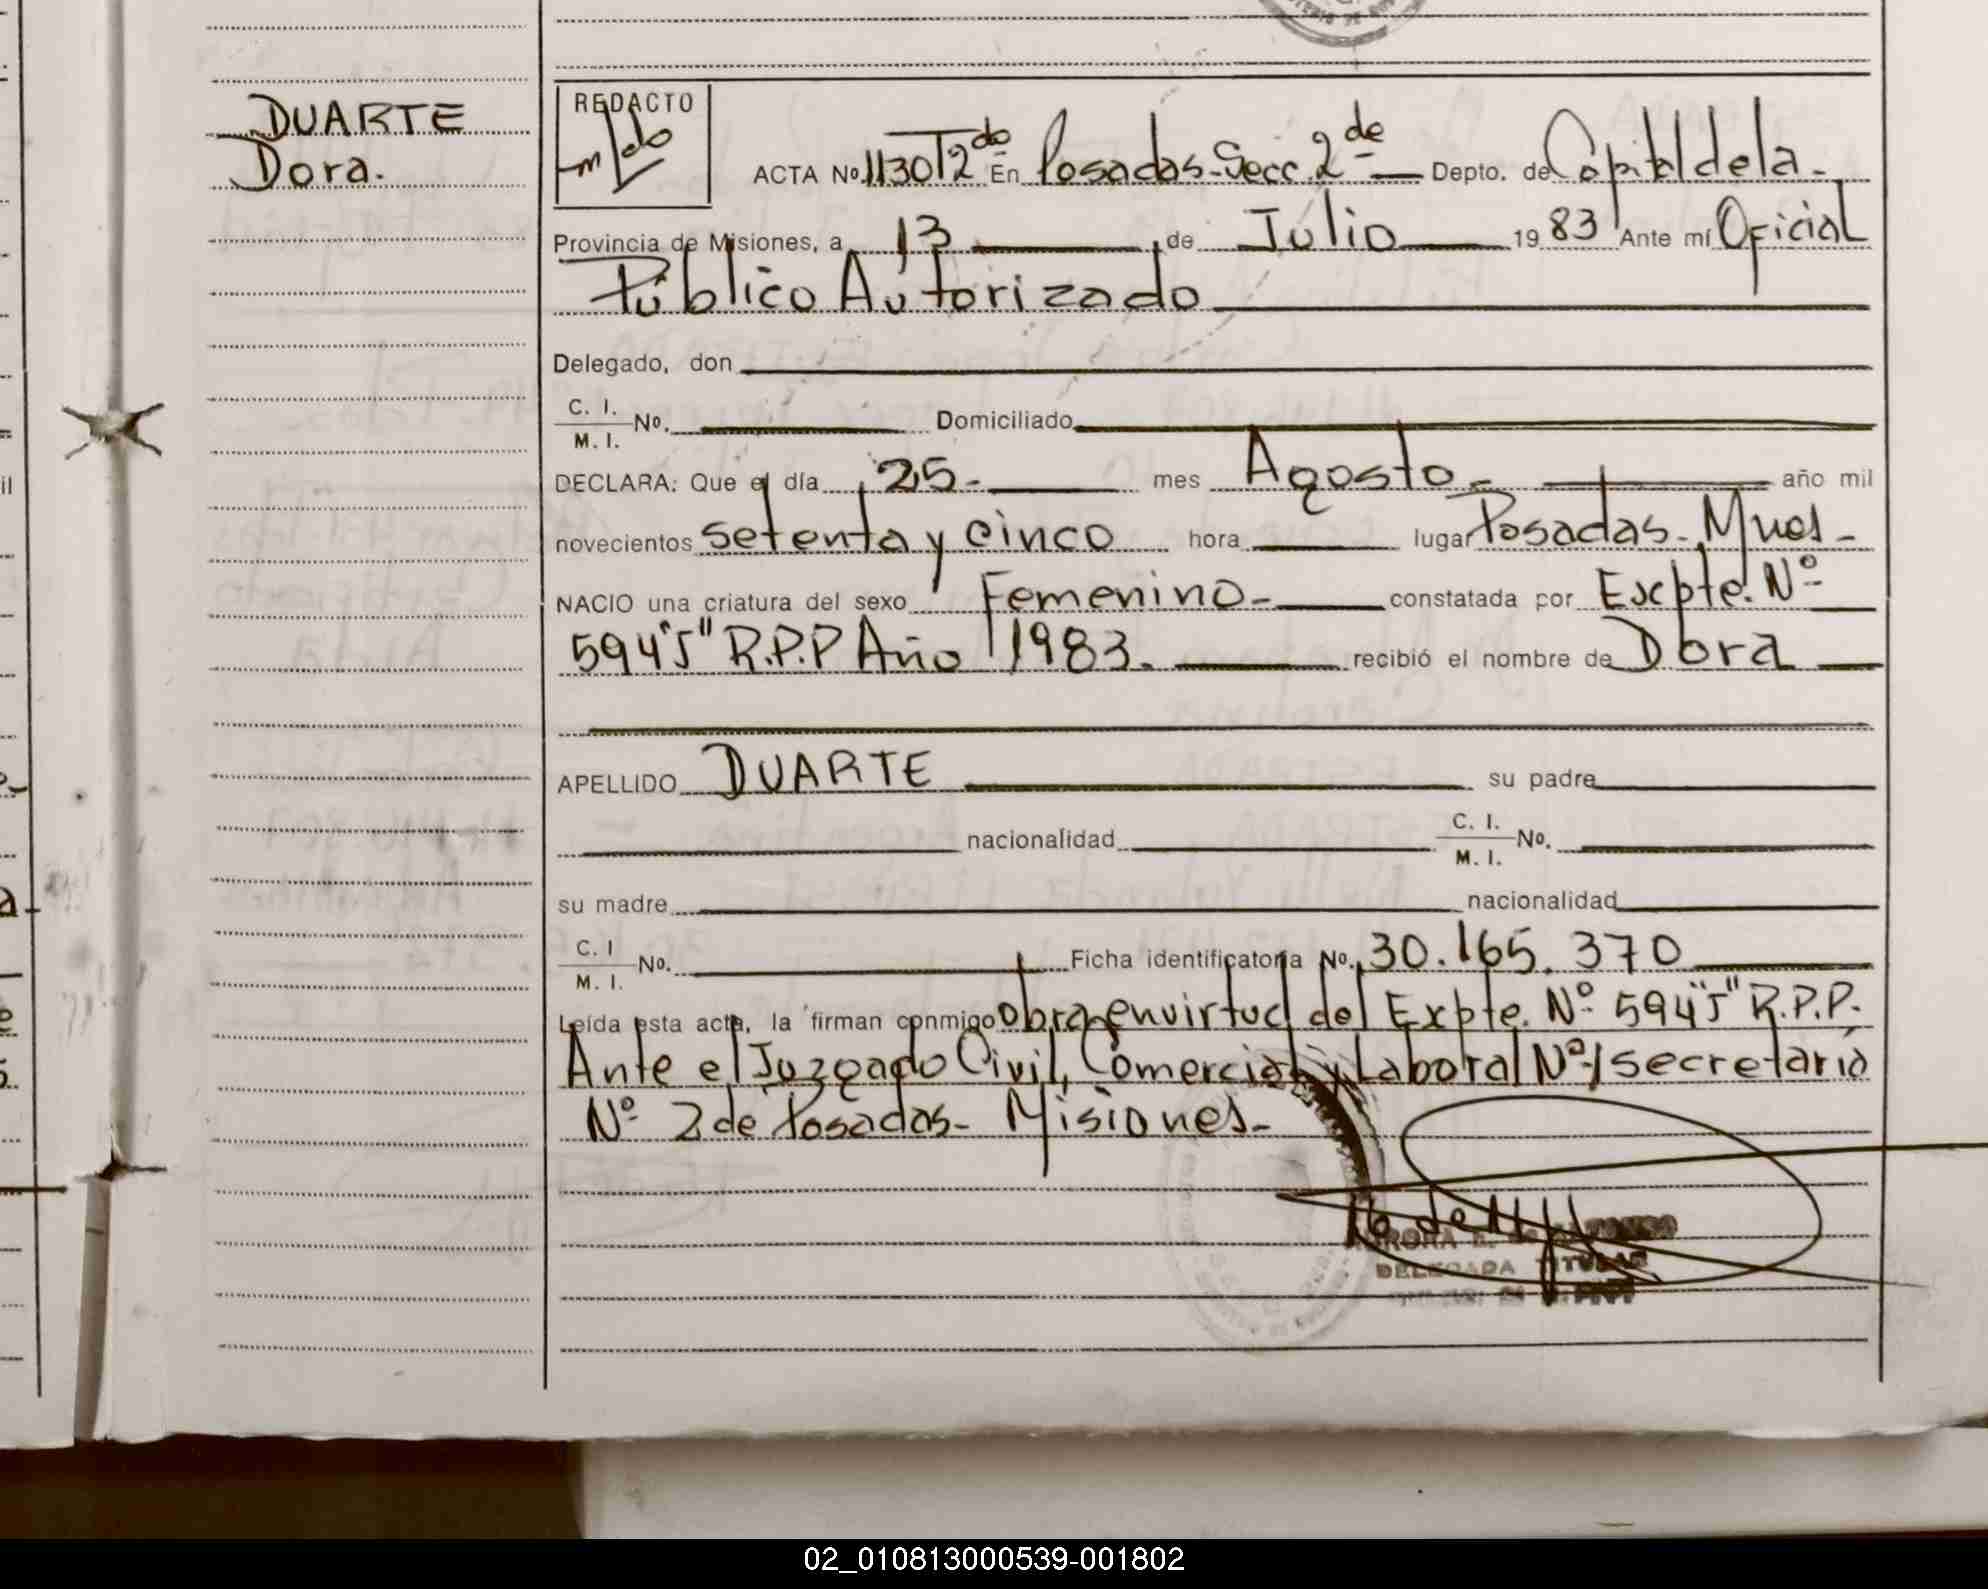 DUARTE
Dora.
REDACTO
ACTA No. 1130 T 2do En Posadas - Secc. 2de Depto. de Capital de la
Provincia de Misiones, a 13 de Julio 1983 Ante mí Oficial
Público Autorizado
Delegado, don
C. I.
M. I. No. Domiciliado
DECLARA: Que el día 25- mes Agosto - año mil
novecientos setenta y cinco hora lugar Posadas - Mnes -
NACIO una criatura del sexo Femenino - constatada por Expte. Nº
594"J" R.P.P Año 1983. recibió el nombre de Dora
APELLIDO DUARTE su padre
nacionalidad C. I.
M. I. No.
su madre nacionalidad
C. I
M. I. No. Ficha identificatoria No. 30.165.370
Leída esta acta, la firman conmigo obra en virtud del Expte. Nº 594"J" R.P.P.
Ante el Juzgado Civil, Comercial y Laboral Nº1 secretaria
Nº 2 de Posadas - Misiones -
DELEGADA TITULAR
02_010813000539-001802